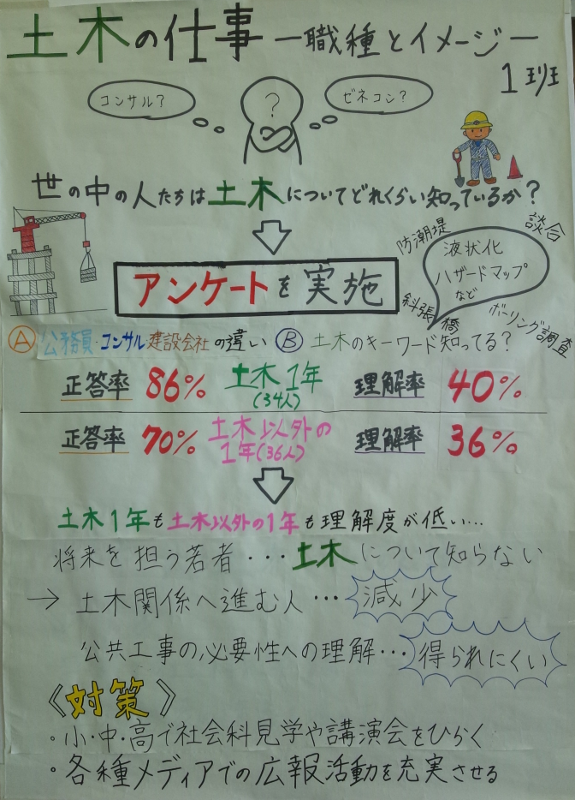 土木の仕事 ー職種とイメージー
1班
コンサル？
ゼネコン？
？
世の中の人たちは土木についてどれくらい知っているか？
アンケートを実施
談合
防潮堤
液状化
ハザードマップ
など
斜張橋
ボーリング調査
Ⓐ公務員・コンサル・建設会社の違い
Ⓑ土木のキーワード知ってる？
正答率 86% 土木1年(34人) 理解率 40%
正答率 70% 土木以外の1年(36人) 理解率 36%
土木1年も土木以外の1年も理解度が低い…
将来を担う若者・・・土木について知らない
→ 土木関係へ進む人…減少
公共工事の必要性への理解…得られにくい
《対策》
・小・中・高で社会科見学や講演会をひらく
・各種メディアでの広報活動を充実させる